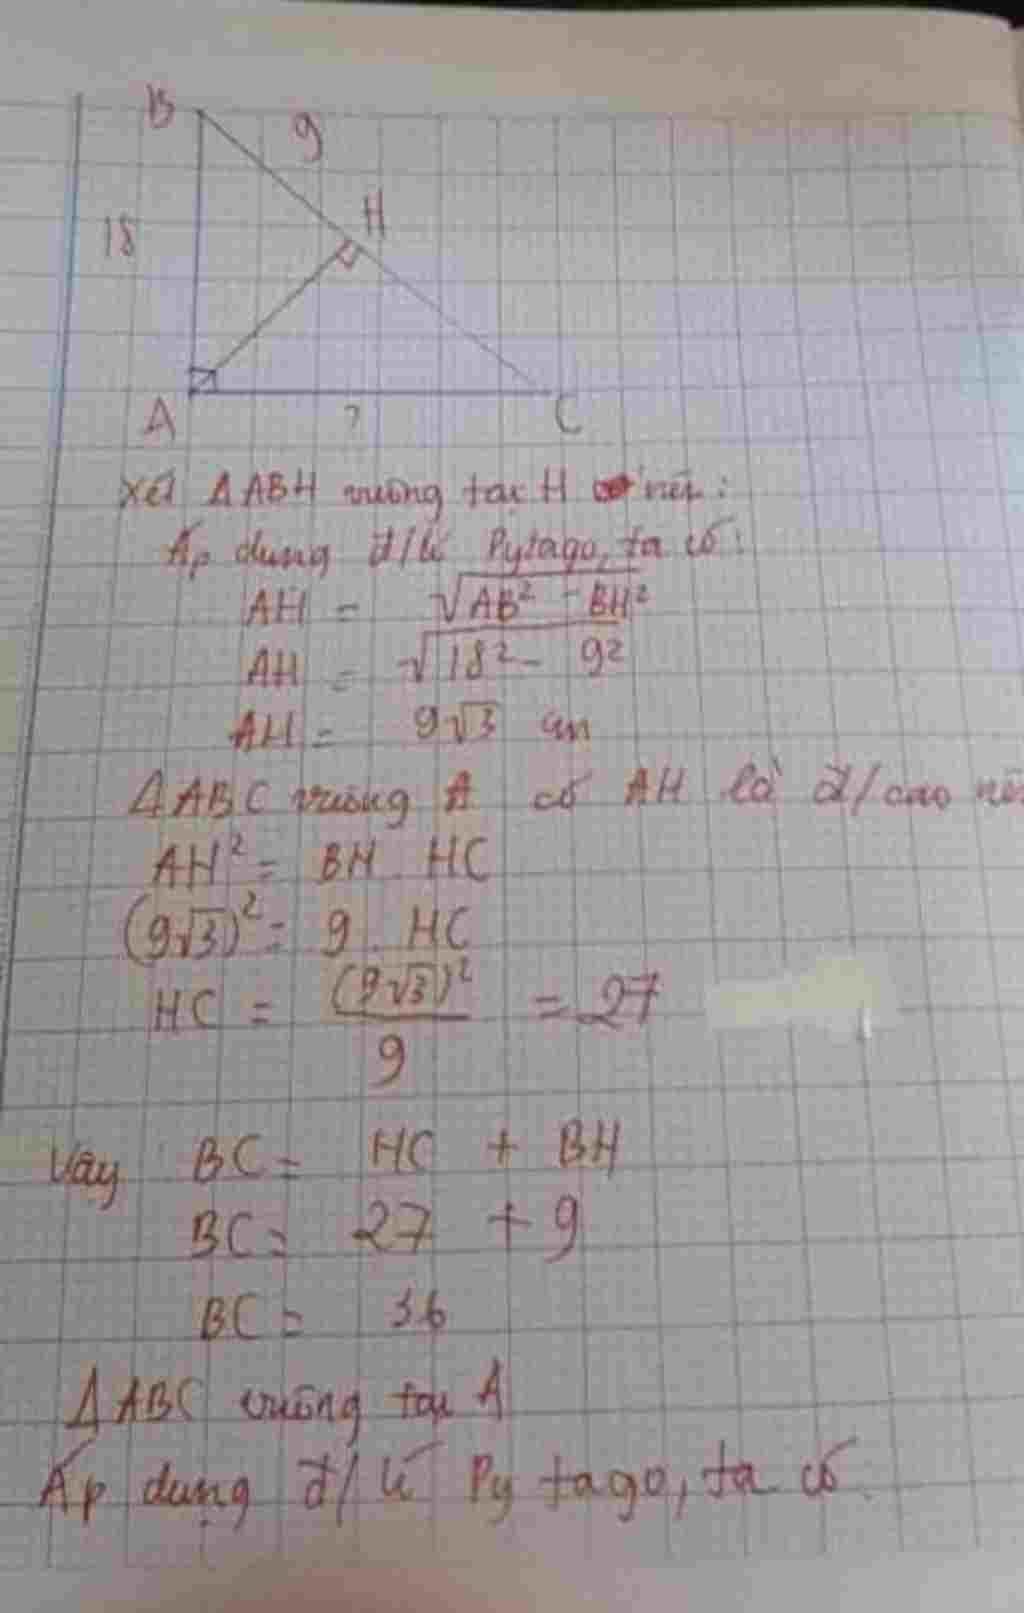 B
9
H
18
A
?
C
Xét ΔABH vuông tại H nên:
Áp dụng đ/lí Pytago, ta có:
AH = √AB² - BH²
AH = √18² - 9²
AH = 9√3 cm
ΔABC vuông A có AH là đ/cao nên
AH² = BH . HC
(9√3)² = 9 . HC
HC = (9√3)² / 9 = 27
Vậy BC = HC + BH
BC = 27 + 9
BC = 36
ΔABC vuông tại A
Áp dụng đ/lí Pytago, ta có: